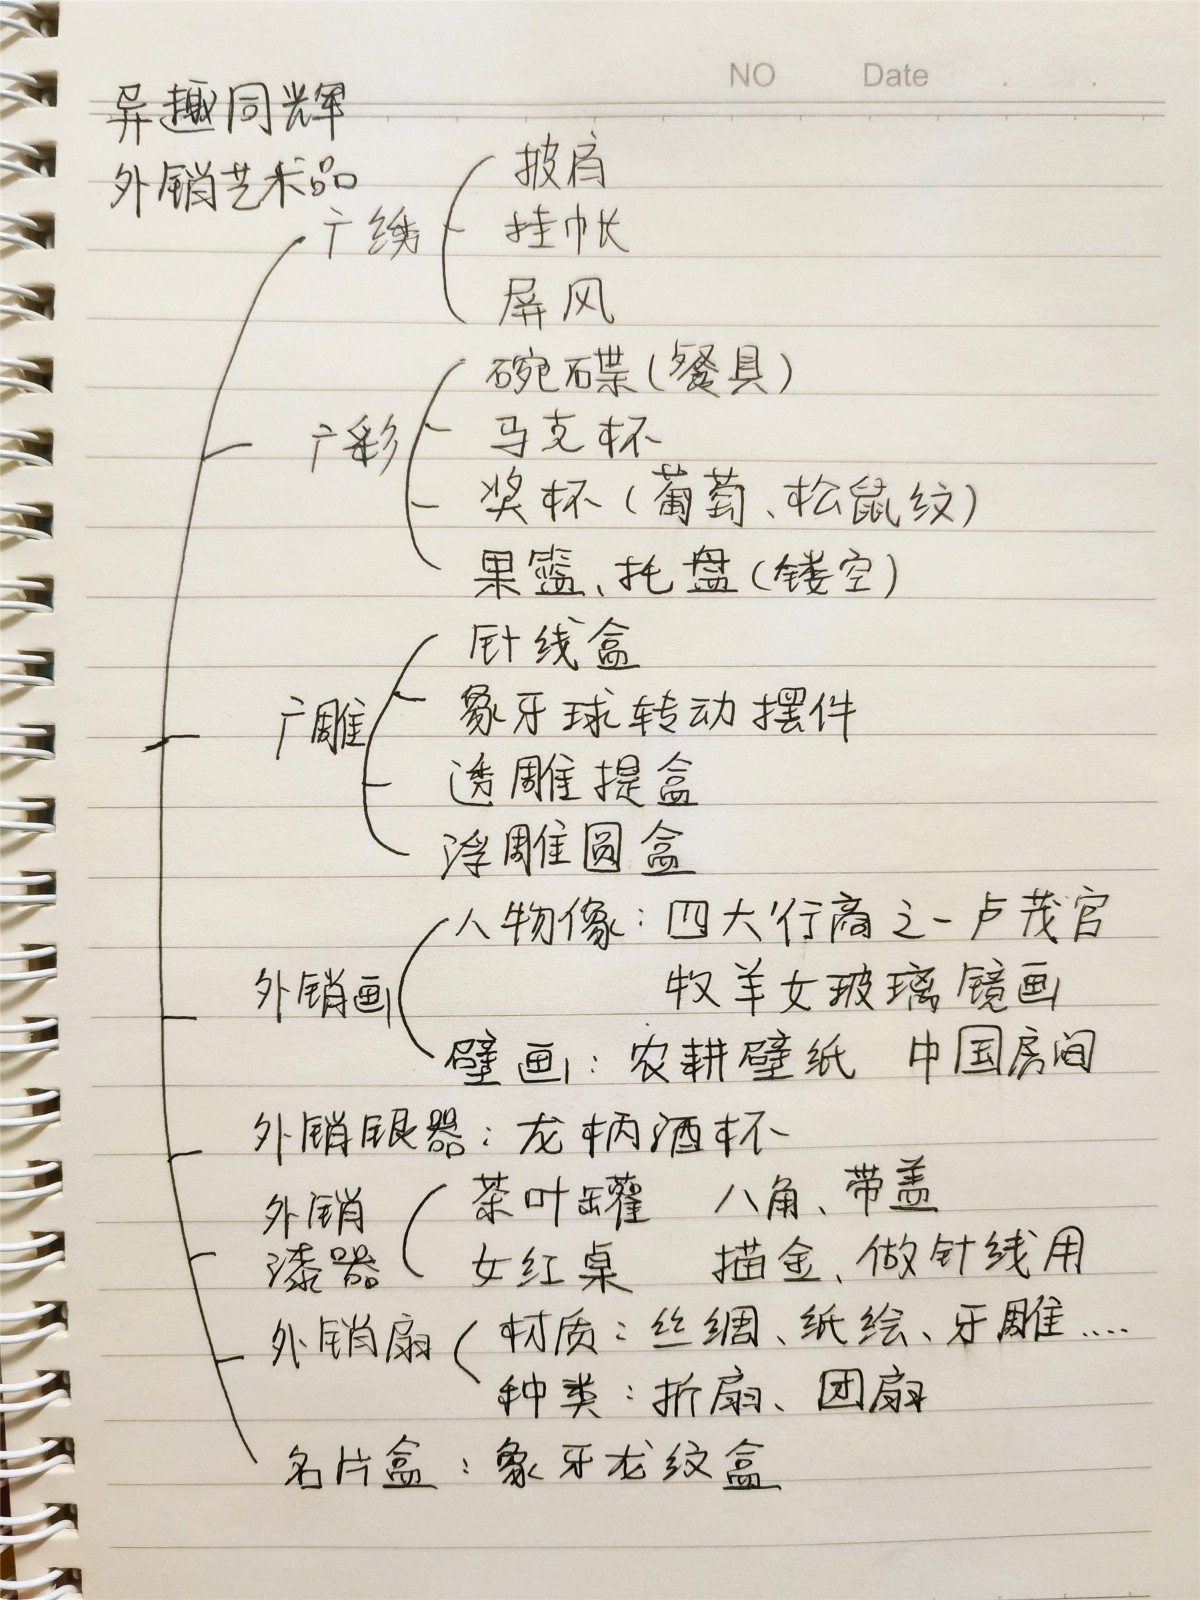 NO Date
异趣同辉
外销艺术品
广绣
披肩
挂帐
屏风
广彩
碗碟(餐具)
马克杯
奖杯(葡萄、松鼠纹)
果篮、托盘(镂空)
广雕
针线盒
象牙球转动摆件
透雕提盒
浮雕圆盒
外销画
人物像:四大行商之一卢茂官
牧羊女玻璃镜画
壁画:农耕壁纸 中国房间
外销银器:龙柄酒杯
外销
漆器
茶叶罐 八角、带盖
女红桌 描金、做针线用
外销扇
材质:丝绸、纸绘、牙雕....
种类:折扇、团扇
名片盒:象牙龙纹盒